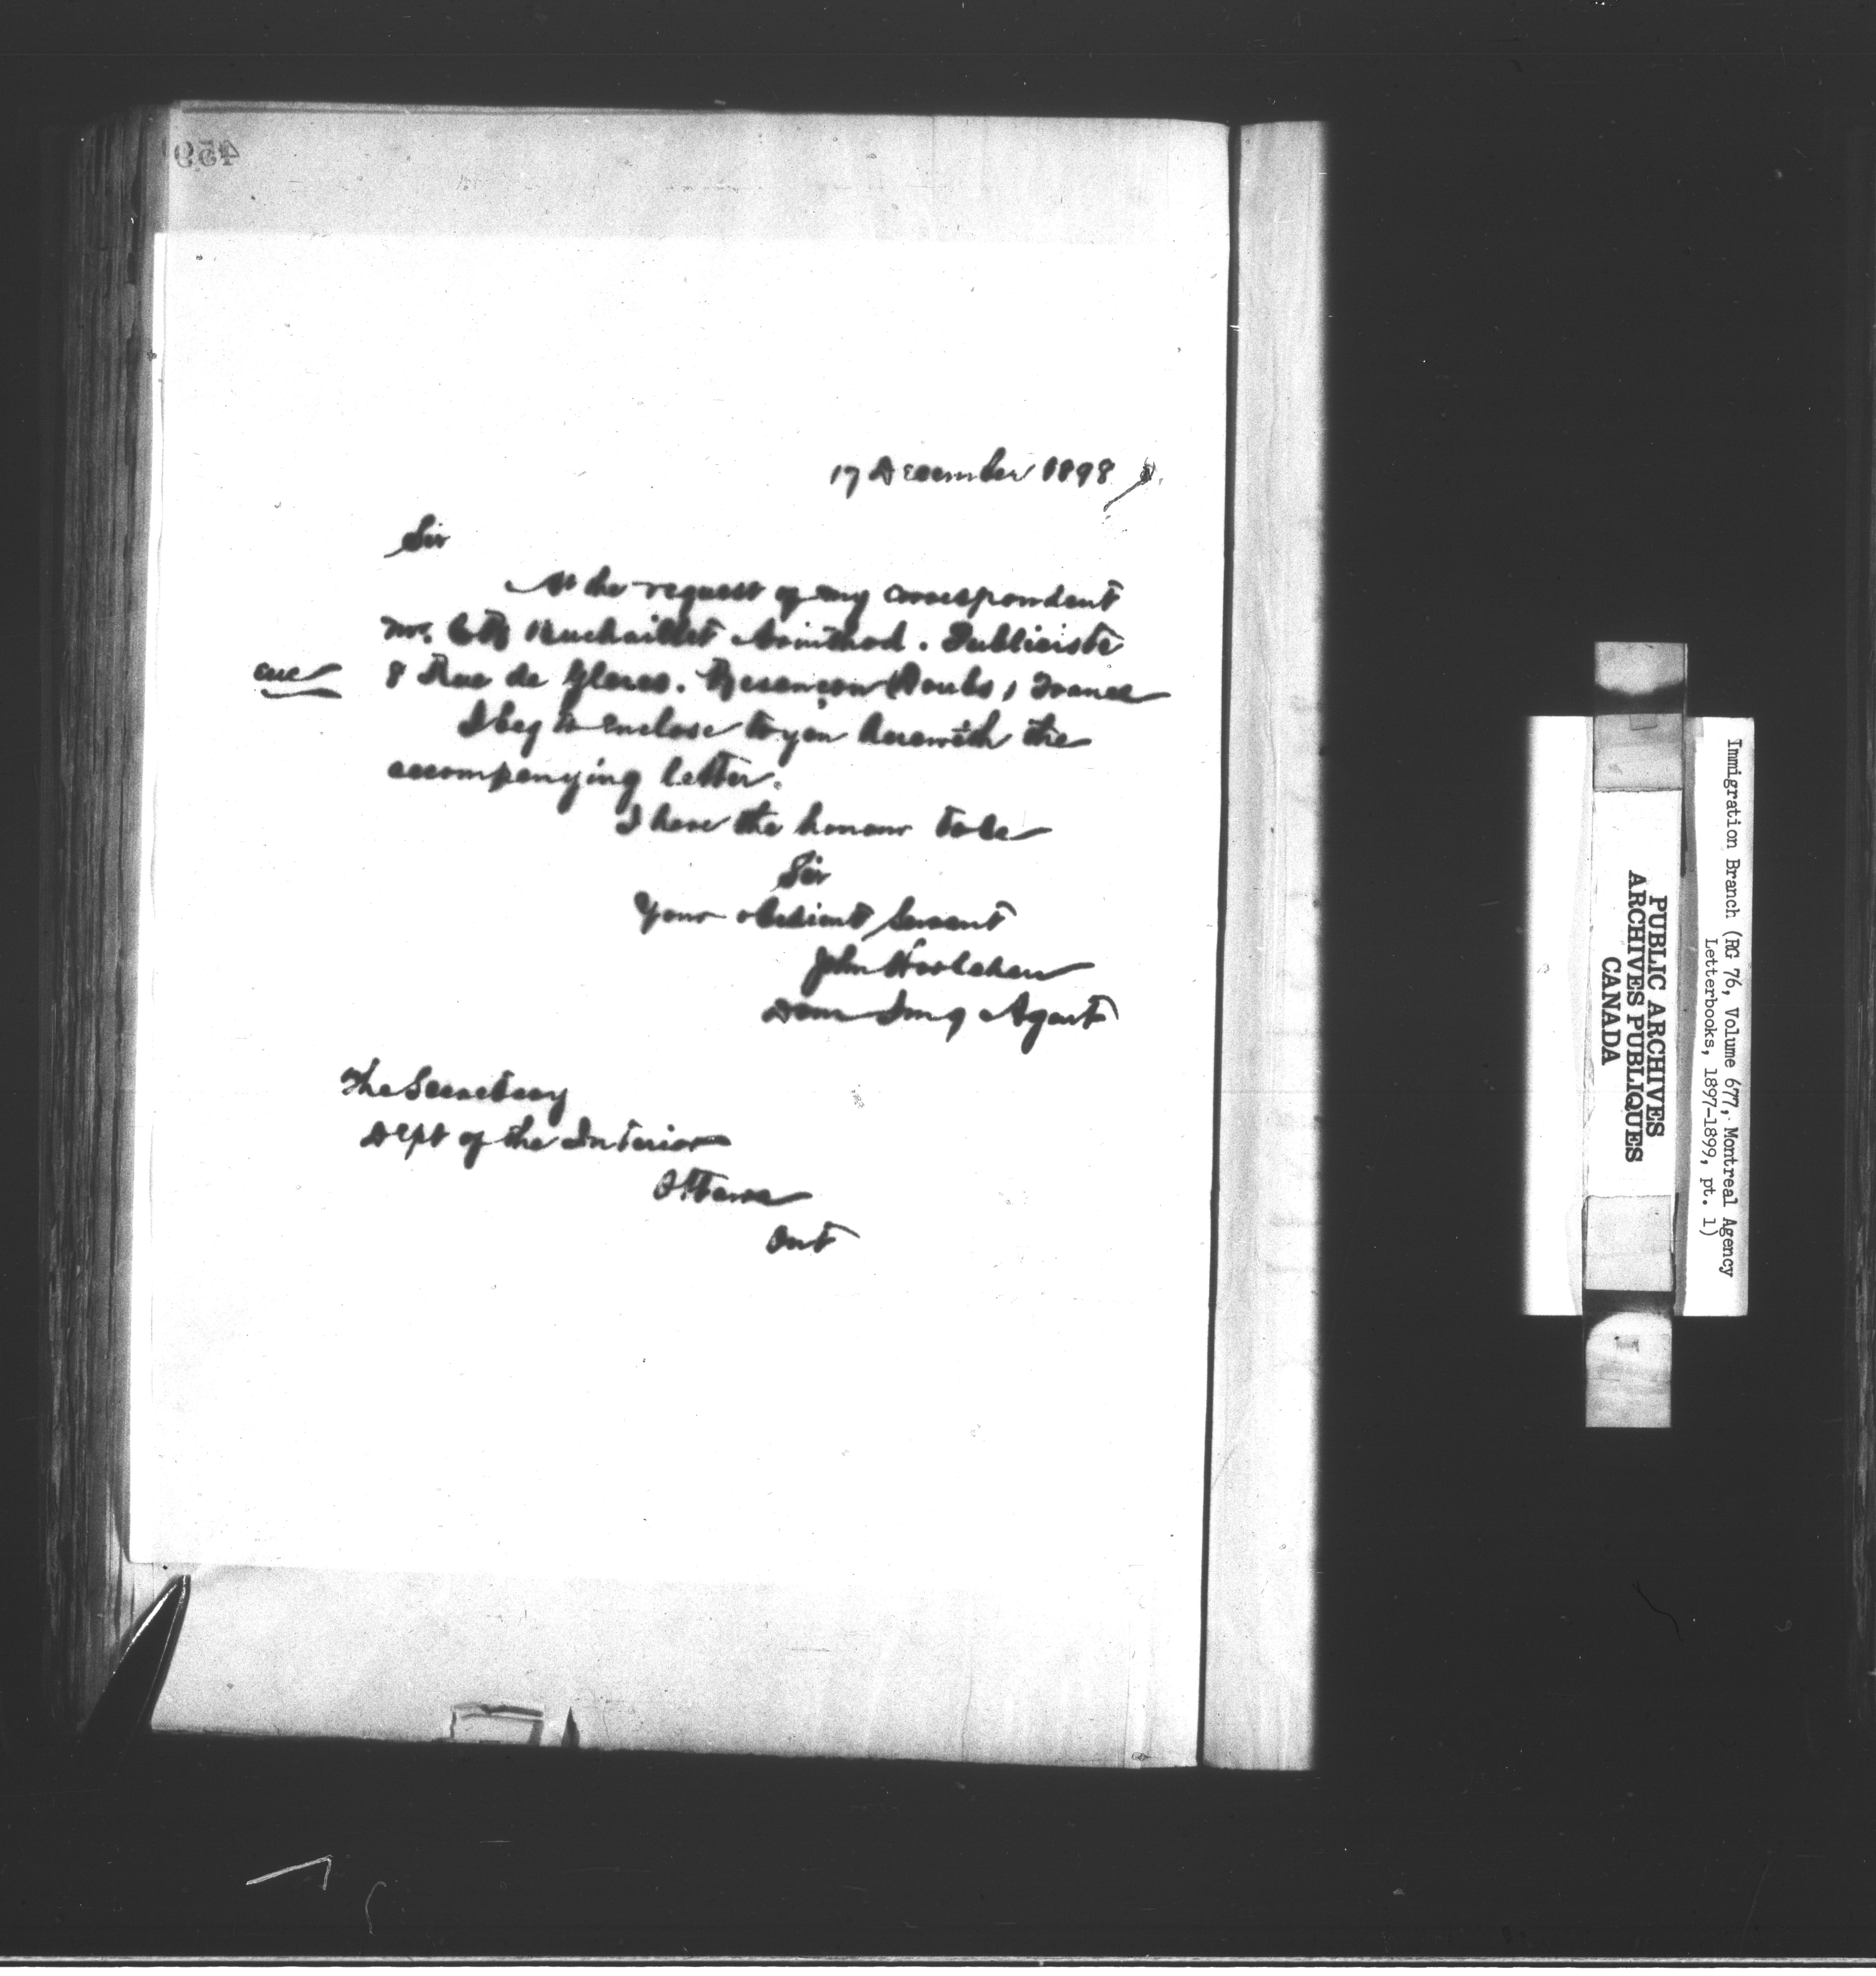 459
17 December 1898
Sir
At the request of my correspondent
Mr. Publiciste
enc 8 Rue de Glores. Besançon (Doubs) France
I beg to enclose to you herewith the
accompanying letter.
I have the honour to be
Sir
Your obedient Servant
John Hoolahan
Dom Img Agent
The Secretary
Dept of the Interior
Ottawa
Ont
Immigration Branch (RG 76, Volume 677, Montreal Agency
Letterbooks, 1897-1899, pt. 1)
PUBLIC ARCHIVES
ARCHIVES PUBLIQUES
CANADA